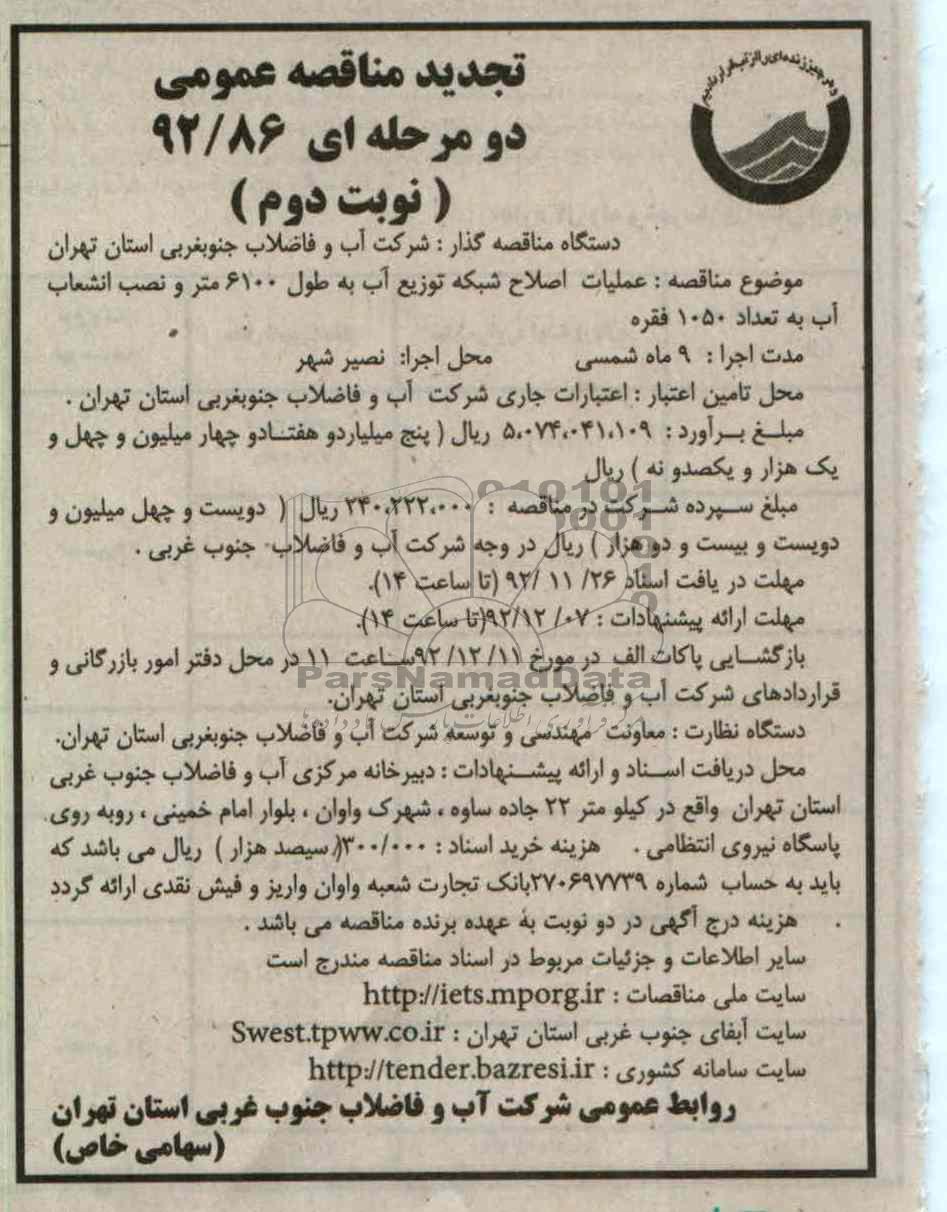 و هر چیز زنده‌ای را از آب قرار دادیم
تجدید مناقصه عمومی
دو مرحله ای ۹۲/۸۶
( نوبت دوم )
دستگاه مناقصه گذار : شرکت آب و فاضلاب جنوبغربی استان تهران
موضوع مناقصه : عملیات اصلاح شبکه توزیع آب به طول ۶۱۰۰ متر و نصب انشعاب
آب به تعداد ۱۰۵۰ فقره
مدت اجرا : ۹ ماه شمسی محل اجرا: نصیر شهر
محل تامین اعتبار : اعتبارات جاری شرکت آب و فاضلاب جنوبغربی استان تهران .
مبلغ برآورد : ۵،۰۷۴،۰۴۱،۱۰۹ ریال ( پنج میلیاردو هفتادو چهار میلیون و چهل و
یک هزار و یکصدو نه ) ریال
مبلغ سپرده شرکت در مناقصه : ۲۴۰،۲۲۲،۰۰۰ ریال ( دویست و چهل میلیون و
دویست و بیست و دو هزار ) ریال در وجه شرکت آب و فاضلاب جنوب غربی .
مهلت در یافت اسناد ۲۶/ ۱۱ /۹۲ (تا ساعت ۱۴).
مهلت ارائه پیشنهادات : ۰۷/ ۹۲/۱۲(تا ساعت ۱۴).
بازگشایی پاکات الف در مورخ ۱۱/ ۱۲/ ۹۲ساعت ۱۱ در محل دفتر امور بازرگانی و
قراردادهای شرکت آب و فاضلاب جنوبغربی استان تهران.
دستگاه نظارت : معاونت مهندسی و توسعه شرکت آب و فاضلاب جنوبغربی استان تهران.
محل دریافت اسناد و ارائه پیشنهادات : دبیرخانه مرکزی آب و فاضلاب جنوب غربی
استان تهران واقع در کیلو متر ۲۲ جاده ساوه ، شهرک واوان ، بلوار امام خمینی ، روبه روی
پاسگاه نیروی انتظامی . هزینه خرید اسناد : ۳۰۰/۰۰۰( سیصد هزار ) ریال می باشد که
باید به حساب شماره ۲۷۰۶۹۷۷۳۹بانک تجارت شعبه واوان واریز و فیش نقدی ارائه گردد
. هزینه درج آگهی در دو نوبت به عهده برنده مناقصه می باشد .
سایر اطلاعات و جزئیات مربوط در اسناد مناقصه مندرج است
سایت ملی مناقصات : http://iets.mporg.ir
سایت آبفای جنوب غربی استان تهران : Swest.tpww.co.ir
سایت سامانه کشوری : http://tender.bazresi.ir
روابط عمومی شرکت آب و فاضلاب جنوب غربی استان تهران
(سهامی خاص)
ParsNamadData